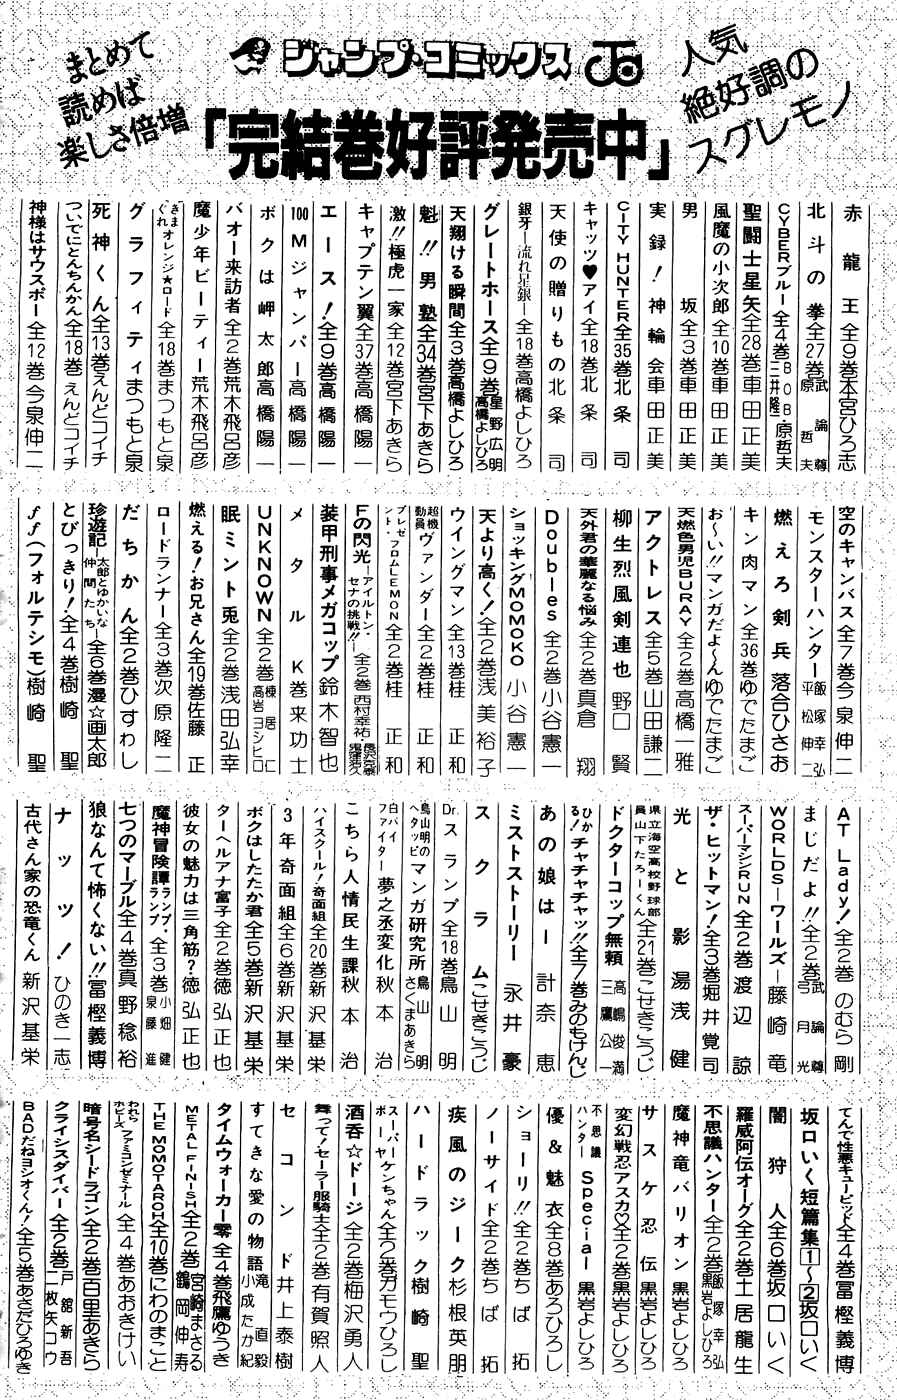 まとめて
読めば
楽しさ倍増
ジャンプ・コミックス
人気
絶好調の
スグレモノ
「完結巻好評発売中」
赤龍王全9巻本宮ひろ志
北斗の拳全27巻武論尊 原哲夫
CYBERブルー全4巻BOB 三井隆一 原哲夫
聖闘士星矢全28巻車田正美
風魔の小次郎全10巻車田正美
男坂全3巻車田正美
実録!神輪会車田正美
CITY HUNTER全35巻北条司
キャッツ♥アイ全18巻北条司
天使の贈りもの北条司
銀牙―流れ星銀―全18巻高橋よしひろ
グレートホース全9巻星野広明 高橋よしひろ
天翔ける瞬間全3巻高橋よしひろ
魁!!男塾全34巻宮下あきら
激!!極虎一家全12巻宮下あきら
キャプテン翼全37巻高橋陽一
エース!全9巻高橋陽一
100Mジャンパー高橋陽一
ボクは岬太郎高橋陽一
バオー来訪者全2巻荒木飛呂彦
魔少年ビーティー荒木飛呂彦
きまぐれオレンジ★ロード全18巻まつもと泉
グラフィティまつもと泉
死神くん全13巻えんどコイチ
ついでにとんちんかん全18巻えんどコイチ
神様はサウスポー全12巻今泉伸二
空のキャンバス全7巻今泉伸二
モンスターハンター飯塚幸弘 平松伸二
燃えろ剣兵落合ひさお
キン肉マン全36巻ゆでたまご
お〜い!!マンガだよ〜んゆでたまご
天燃色男児BURAY全2巻高橋一雅
アクトレス全5巻山田謙二
柳生烈風剣連也野口賢
天外君の華麗なる悩み全2巻真倉翔
Doubles全2巻小谷憲一
ショッキングMOMOKO小谷憲一
天より高く!全2巻浅美裕子
ウイングマン全13巻桂正和
超機動員ヴァンダー全2巻桂正和
プレゼント・フロムLEMON全2巻桂正和
Fの閃光―アイルトン・セナの挑戦!!―全2巻西村幸祐・
装甲刑事メガコップ鈴木智也
メタルK巻来功士
UNKNOWN全2巻棟居仁 高岩ヨシヒロ
眠ミント兎全2巻浅田弘幸
燃える!お兄さん全19巻佐藤正
ロードランナー全3巻次原隆二
だちかん全2巻ひすわし
珍遊記―太郎とゆかいな仲間たち―全6巻漫☆画太郎
とびっきり!全4巻樹崎聖
ff(フォルテシモ)樹崎聖
AT Lady!全2巻のむら剛
まじだよ!!全2巻武論尊 弓月光
WORLDS―ワールズ―藤崎竜
スーパーマシンRUN全2巻渡辺諒
ザ・ヒットマン!全3巻堀井覚司
光と影湯浅健
県立海空高校野球部員山下たろーくん全21巻こせきこうじ
ドクターコップ無頼高嶋俊満 三鷹公一
ひかる!チャチャチャッ!!全7巻みのもけんじ
あの娘はー計奈恵
ミストストーリー永井豪
スクラムこせきこうじ
Dr.スランプ全18巻鳥山明
鳥山明のヘタッピマンガ研究所鳥山明 さくまあきら
白バイファイター夢之丞変化秋本治
こちら人情民生課秋本治
ハイスクール!奇面組全20巻新沢基栄
3年奇面組全6巻新沢基栄
ボクはしたたか君全5巻新沢基栄
ターヘルアナ富子全2巻徳弘正也
彼女の魅力は三角筋?徳弘正也
魔神冒険譚ランプ・ランプ全3巻小畑健 泉藤進
七つのマーブル全4巻真野稔裕
狼なんて怖くない!!冨樫義博
ナッツ!ひのき一志
古代さん家の恐竜くん新沢基栄
てんで性悪キューピッド全4巻冨樫義博
坂口いく短篇集1〜2坂口いく
闇狩人全6巻坂口いく
羅威阿伝オーグ全2巻土居龍生
不思議ハンター全2巻飯塚幸弘 黒岩よしひろ
魔神竜バリオン黒岩よしひろ
サスケ忍伝黒岩よしひろ
変幻戦忍アスカ♡全2巻黒岩よしひろ
不思議ハンターSpecial黒岩よしひろ
優&魅衣全8巻あろひろし
ショーリ!!全2巻ちば拓
ノーサイド全2巻ちば拓
疾風のジーク杉根英朋
ハードラック樹崎聖
スーパーケンちゃんボーヤ全2巻ガモウひろし
酒呑☆ドージ全2巻梅沢勇人
舞って!セーラー服騎士全2巻有賀照人
セコンド井上泰樹
すてきな愛の物語滝直毅 小成たか紀
タイムウォーカー零全4巻飛鷹ゆうき
METAL FINISH全2巻宮崎まさる 鶴岡伸寿
THE MOMOTAROH全10巻にわのまこと
われらホビーズファミコンゼミナール全4巻あおきけい
暗号名シードラゴン全2巻百里あきら
クライシスダイバー全2巻戸舘新吾 二枚矢コウ
BADだねヨシオくん!全5巻あきだひろゆき